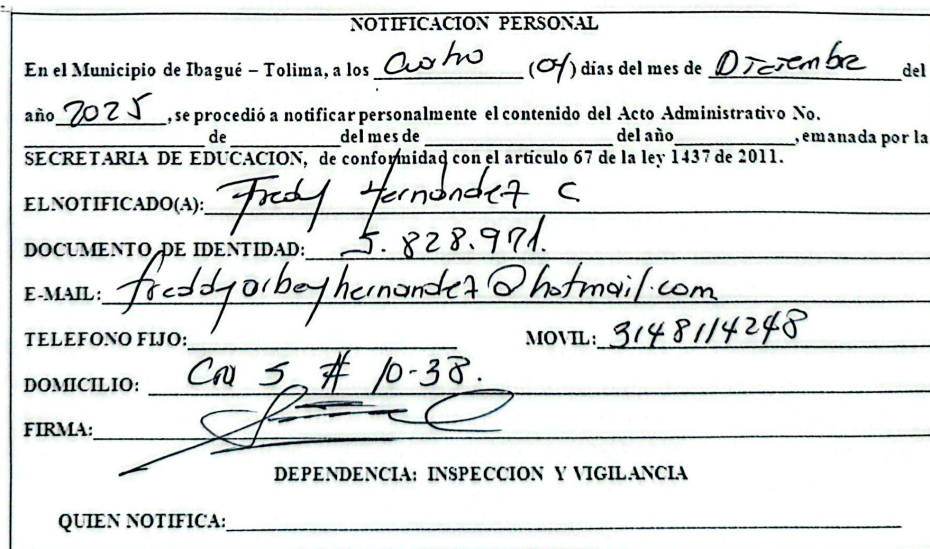 NOTIFICACION PERSONAL
En el Municipio de Ibagué – Tolima, a los Cuatro (04) días del mes de Diciembre del
año 2025, se procedió a notificar personalmente el contenido del Acto Administrativo No.
____________ de ____________ del mes de ____________ del año ____________, emanada por la
SECRETARIA DE EDUCACION, de conformidad con el artículo 67 de la ley 1437 de 2011.
EL NOTIFICADO(A): Fredy Hernández C
DOCUMENTO DE IDENTIDAD: 5.828.971.
E-MAIL: freddyorbeyhernandez@hotmail.com
TELEFONO FIJO: ____________ MOVIL: 3148114248
DOMICILIO: Cra 5 # 10-38.
FIRMA:
DEPENDENCIA: INSPECCION Y VIGILANCIA
QUIEN NOTIFICA: ____________